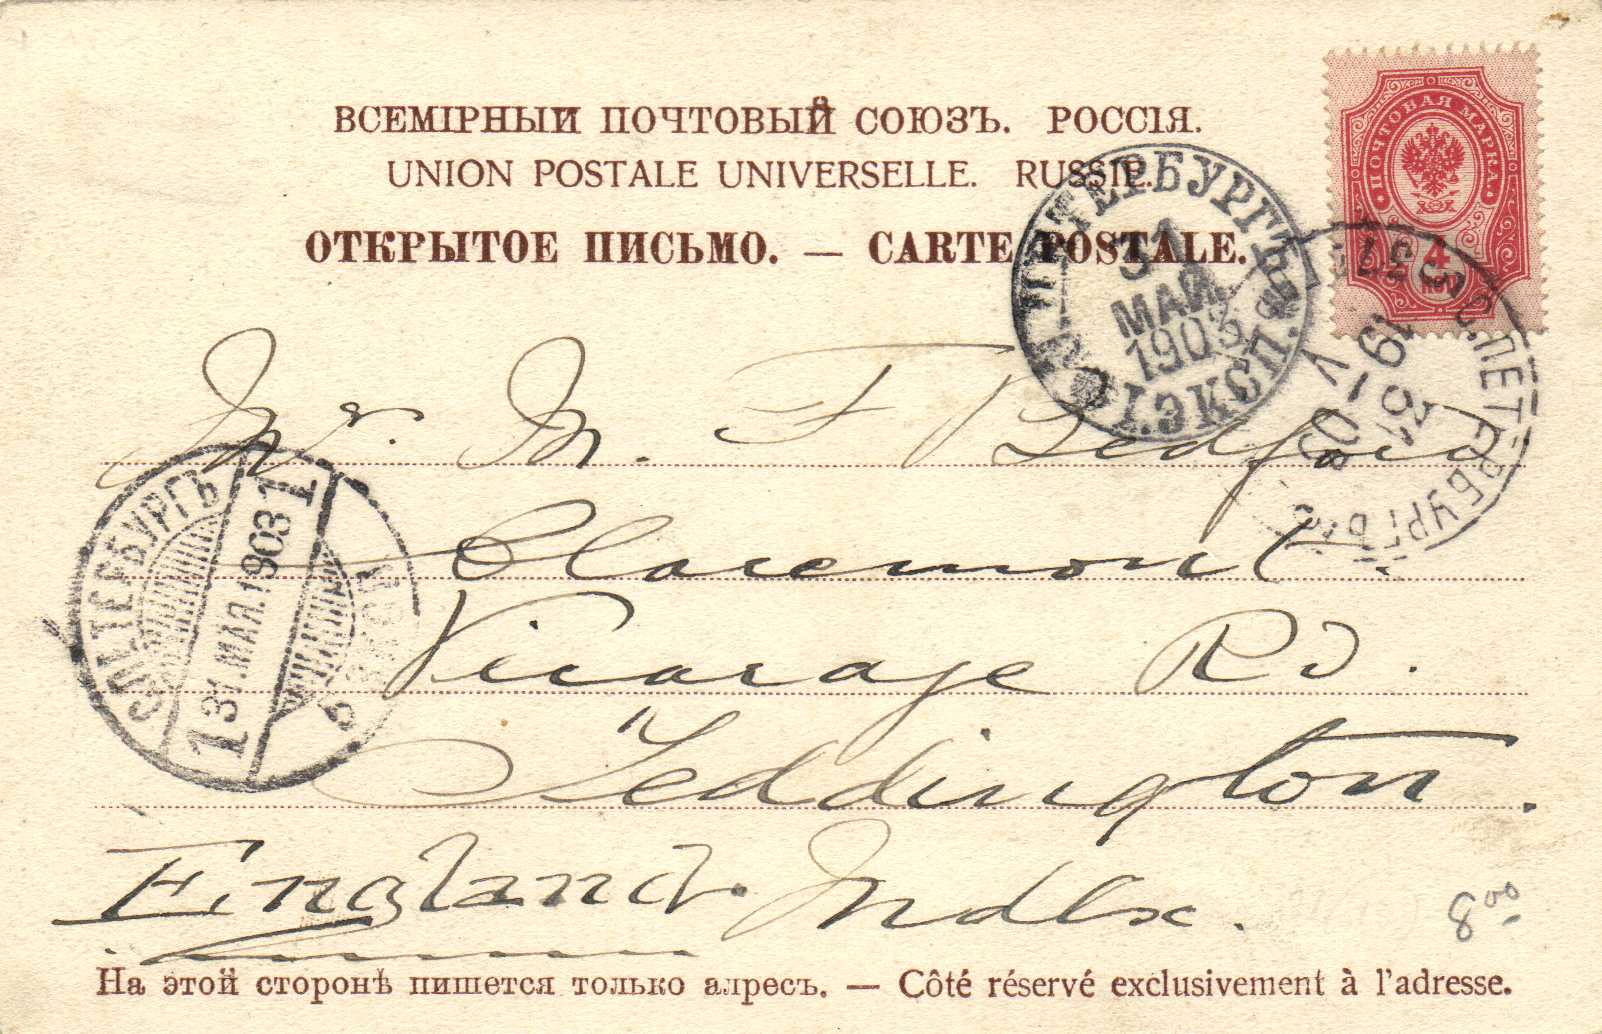 ВСЕМІРНЫЙ ПОЧТОВЫЙ СОЮЗЪ. РОССІЯ.
UNION POSTALE UNIVERSELLE. RUSSIE.
ОТКРЫТОЕ ПИСЬМО. — CARTE POSTALE.
ПОЧТОВАЯ МАРКА.
4
КОП
ПЕТЕРБУРГЪ
31
МАЙ.
1903
ЭКСП.
С.ПЕТЕРБУРГЪ
31
V-03
Mr. M. F Bedford
Claremont.
Vicarage Rd.
Teddington.
England. Mdlx.
С.ПЕТЕРБУРГЪ
1 31.МАЯ.1903 1
8 00
На этой сторонѣ пишется только адресъ. — Côté réservé exclusivement à l'adresse.